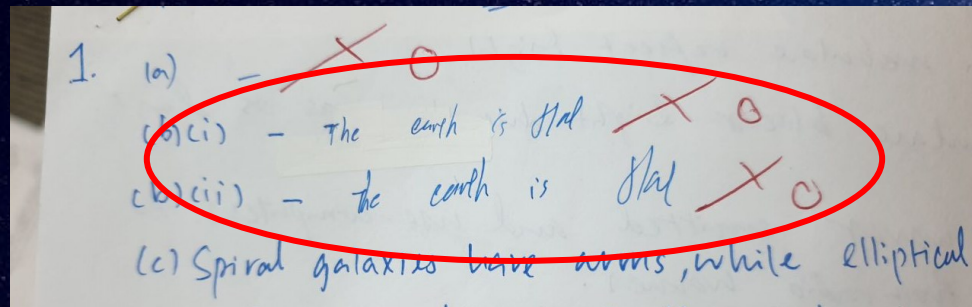 1. (a) - X 0
(b)(i) - The earth is flat X 0
(b)(ii) - the earth is flat X 0
(c) Spiral galaxies have arms, while elliptical